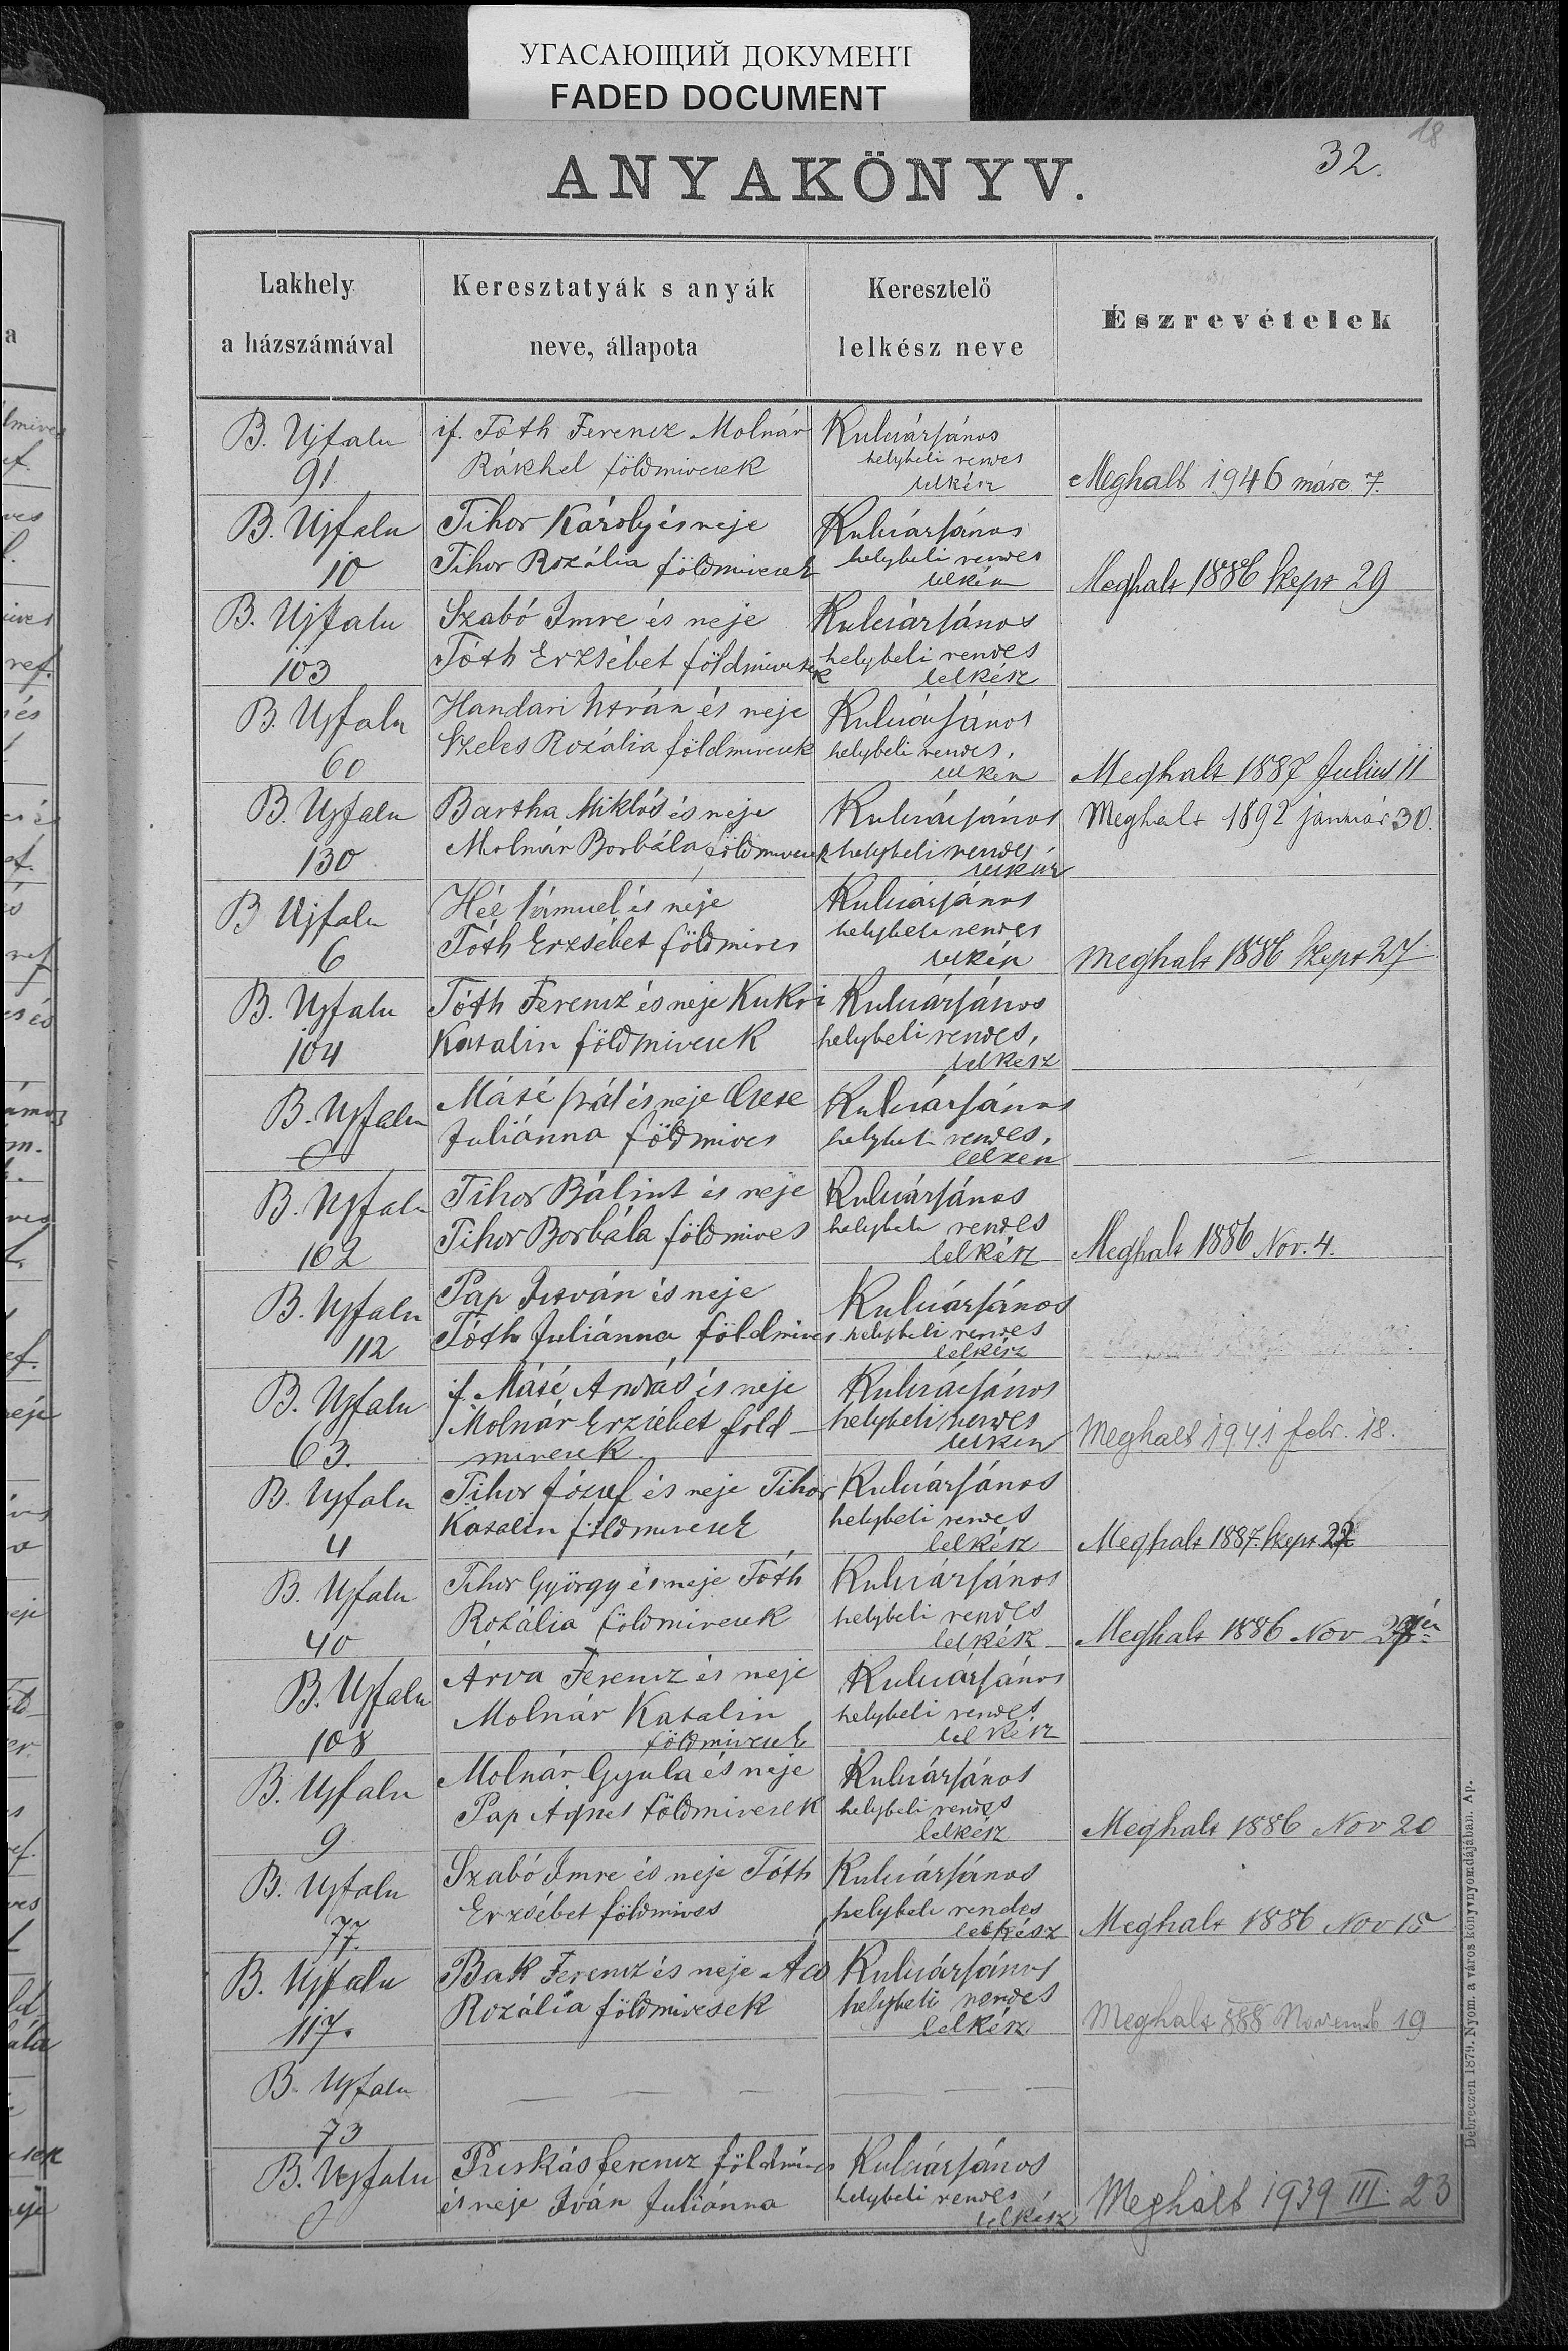 УГАСАЮЩИЙ ДОКУМЕНТ
FADED DOCUMENT
18
32.
ANYAKÖNYV.
Lakhely
a házszámával
Keresztatyák s anyák
neve, állapota
Keresztelö
lelkész neve
Észrevételek
B. Ujfalu
91
if. Tóth Ferencz Molnár
Rákhel földmivesek
Kulcsár János
helybeli rendes
lelkész
Meghalt 1946 márc 7.
B. Ujfalu
10
Tihor Károly és neje
Tihor Rozália földmivesek
Kulcsár János
helybeli rendes
lelkész
Meghalt 1886 Szept 29
B. Ujfalu
103
Szabó Imre és neje
Tóth Erzsébet földmivesek
Kulcsár János
helybeli rendes
lelkész
B. Ujfalu
60
Handari István és neje
Szeles Rozália földmivesek
Kulcsár János
helybeli rendes
lelkész
Meghalt 1887 Julius 11
B. Ujfalu
130
Bartha Miklós és neje
Molnár Borbála földmivesek
Kulcsár János
helybeli rendes
lelkész
Meghalt 1892 január 30.
B Ujfalu
6
Sámuel és neje
Tóth Erzsébet földmives
Kulcsár János
helybeli rendes
lelkész
Meghalt 1886 Szept 27
B. Ujfalu
104
Tóth Ferencz és neje Kukri
Katalin földmivesek
Kulcsár János
helybeli rendes
lelkész
B. Ujfalu
Máté Pál és neje Csese
Juliánna földmives
Kulcsár János
helybeli rendes
lelkész
B. Ujfalu
102
Tihor Bálint és neje
Tihor Borbála földmives
Kulcsár János
helybeli rendes
lelkész
Meghalt 1886 Nov. 4.
B. Ujfalu
112
Pap István és neje
Tóth Juliánna földmives
Kulcsár János
helybeli rendes
lelkész
B. Ujfalu
63.
if. Máté András és neje
Molnár Erzsébet föld
mivesek
Kulcsár János
helybeli rendes
lelkész
Meghalt 1941 febr. 18.
B. Ujfalu
4
Tihor József és neje Tihor
Katalin földmivesek
Kulcsár János
helybeli rendes
lelkész
Meghalt 1887. Szept 22
B. Ujfalu
40
Tihor György és neje Tóth
Rozália földmivesek
Kulcsár János
helybeli rendes
lelkész
Meghalt 1886 Nov
B. Ujfalu
108
Arva Ferencz és neje
Molnár Katalin
földmivesek
Kulcsár János
helybeli rendes
lelkész
B. Ujfalu
9
Molnár Gyula és neje
Pap Agnes földmivesek
Kulcsár János
helybeli rendes
lelkész
Meghalt 1886 Nov 20
B. Ujfalu
77.
Szabó Imre és neje Tóth
Erzsébet földmives
Kulcsár János
helybeli rendes
lelkész
Meghalt 1886 Nov 15
B. Ujfalu
117.
Bak Ferencz és neje Acs
Rozália földmivesek
Kulcsár János
helybeli rendes
lelkész
Meghalt 888 Novemb 19
B. Ujfalu
73
B. Ujfalu
Puskás Ferencz földmives
és neje Iván Juliánna
Kulcsár János
helybeli rendes
lelkész
Meghalt 1939 III. 23
Debreczen 1879. Nyom. a város könyvnyomdájában. Ap.